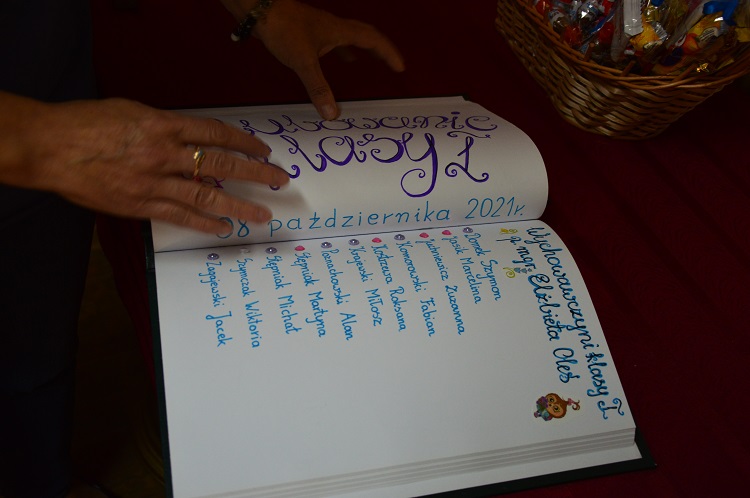 lubowanie
lasy I
08 października 2021r.
Wychowawczyni klasy I
p. mgr Elżbieta Oleś
Domek Szymon
Marcelina
Zuzanna
Komorowski Fabian
Kostrzewa Roksana
Krajewski Miłosz
Poznachowski Alan
Stępniak Martyna
Stępniak Michał
Szymczak Wiktoria
Zagajewski Jacek